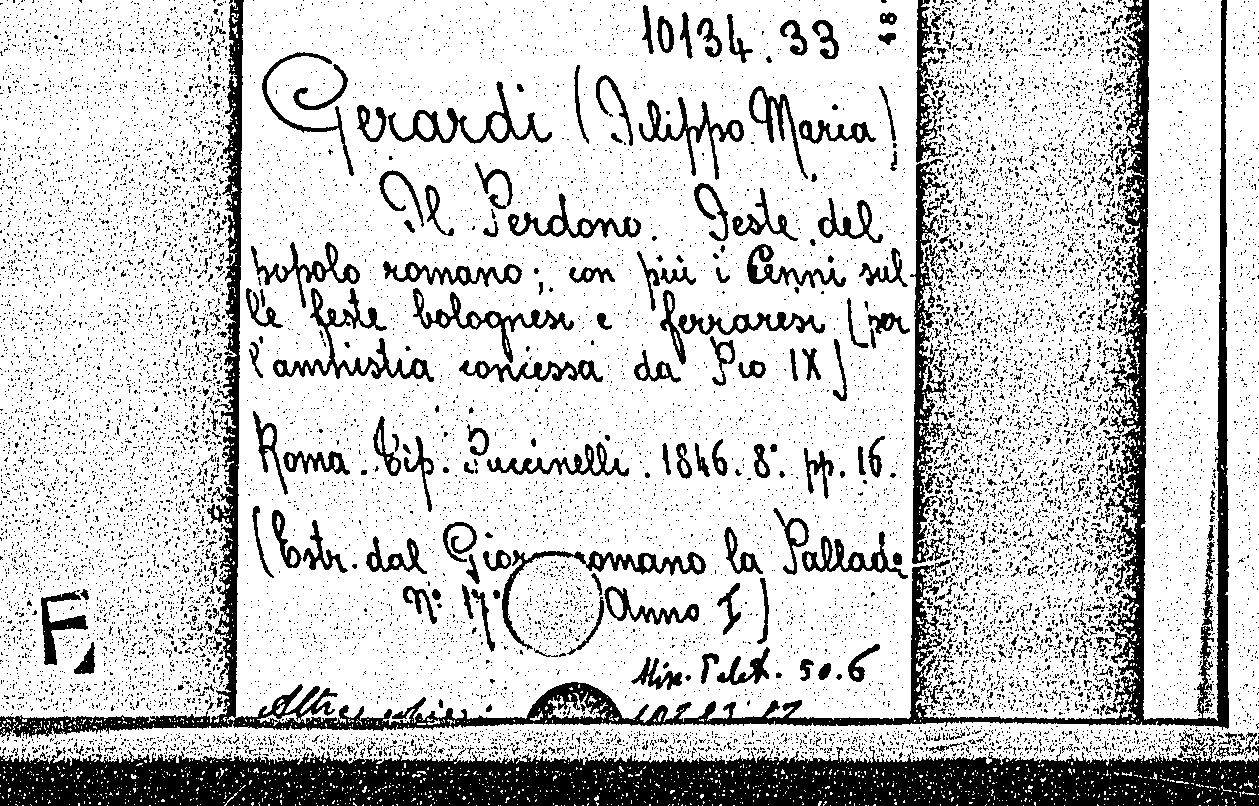 10134.33
48
Gerardi (Filippo Maria)
Il Perdono. Feste del
popolo romano; con più i Cenni sul-
le feste bolognesi e ferraresi (per
l'amnistia concessa da Pio IX)
Roma. Tip. Puccinelli. 1846. 8.° pp. 16.
(Estr. dal Gior romano la Pallade
N.° 17. Anno I)
Misc. 50.6
Altre
F